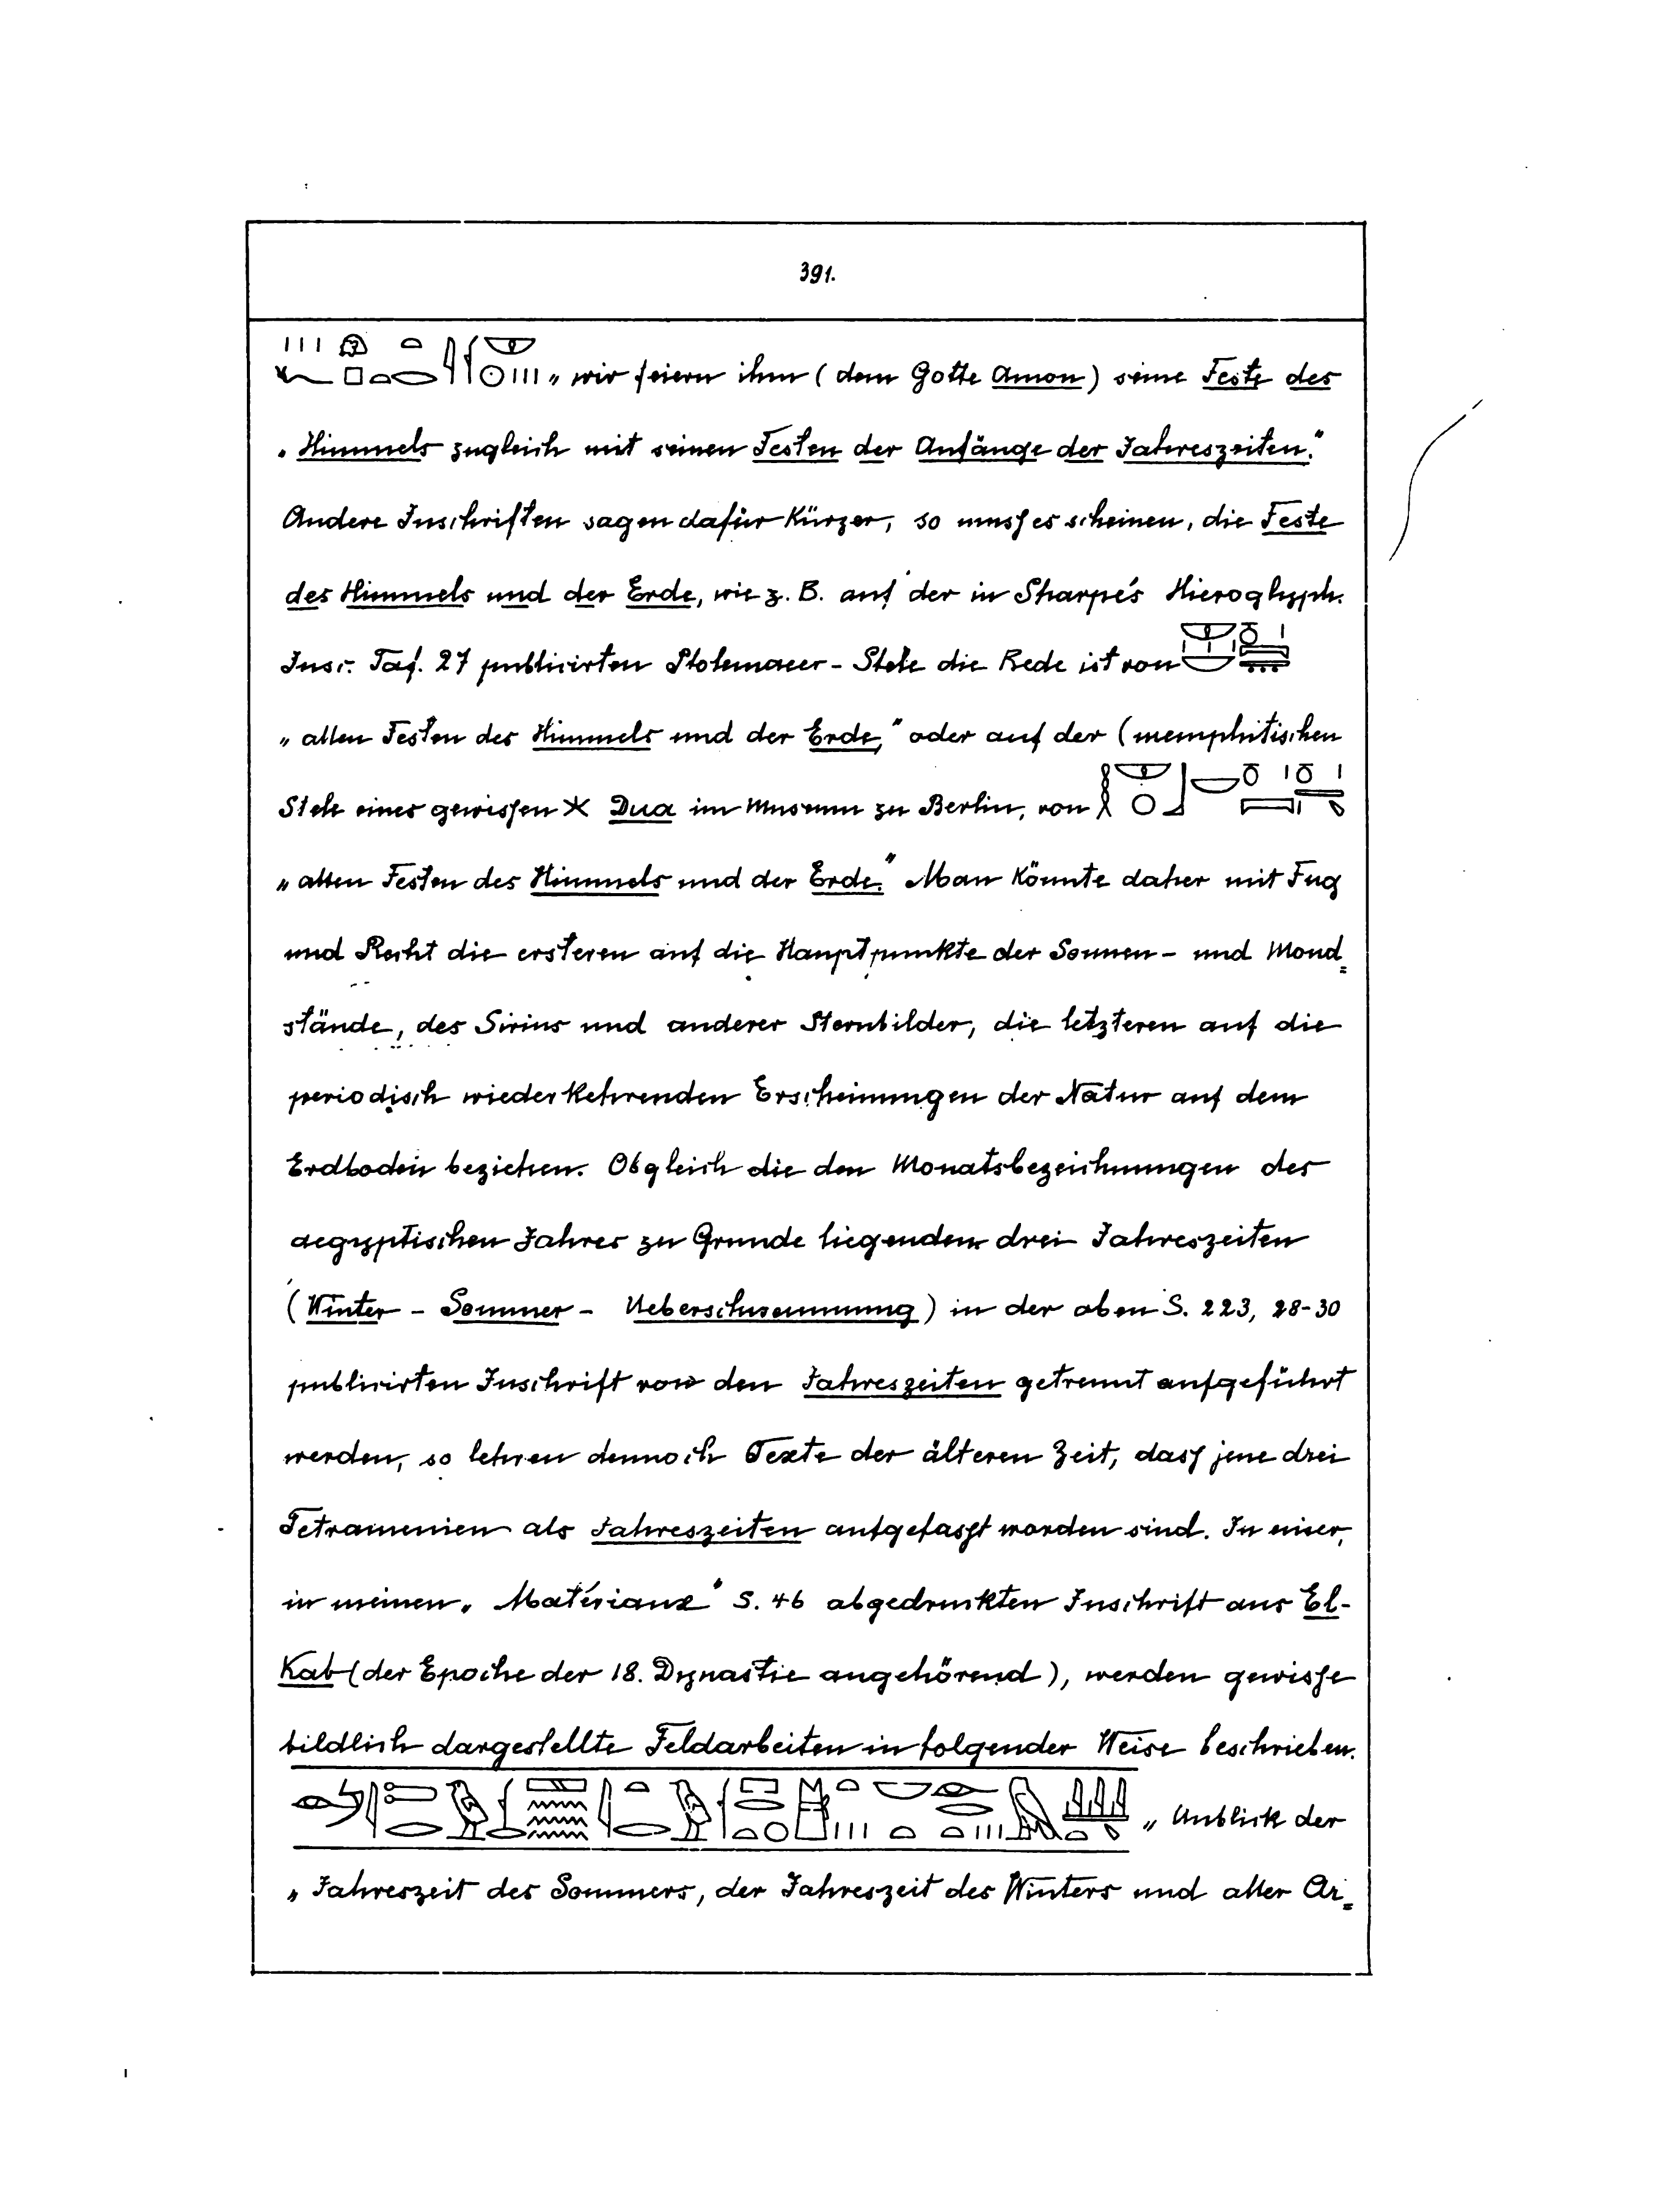 391.
„wir feiern ihm (dem Gotte Amon) seine Feste des
„Himmels zugleich mit seinen Festen der Anfänge der Jahreszeiten."
Andere Inschriften sagen dafür kürzer, so muss es scheinen, die Feste
des Himmels und der Erde, wie z. B. auf der in Sharpe's Hieroglyph.
Inscr. Taf. 27 publicirten Ptolemaeer-Stele die Rede ist von
„allen Festen des Himmels und der Erde," oder auf der (memphitischen
Stele eines gewissen Dua im Museum zu Berlin, von
„allen Festen des Himmels und der Erde." Man könnte daher mit Fug
und Recht die ersteren auf die Hauptpunkte der Sonnen- und Mond=
stände, des Sirius und anderer Sternbilder, die letzteren auf die
periodisch wiederkehrenden Erscheinungen der Natur auf dem
Erdboden beziehen. Obgleich die den Monatsbezeichnungen des
aegyptischen Jahres zu Grunde liegenden drei Jahreszeiten
(Winter - Sommer - Ueberschwemmung) in der oben S. 223, 28-30
publicirten Inschrift von den Jahreszeiten getrennt aufgeführt
werden, so lehren dennoch Texte der älteren Zeit, dass jene drei
Tetramenien als Jahreszeiten aufgefasst worden sind. In einer,
in meinen „Matériaux" S. 46 abgedruckten Inschrift aus El-
Kab (der Epoche der 18. Dynastie angehörend), werden gewisse
bildlich dargestellte Feldarbeiten in folgender Weise beschrieben.
„Anblick der
„Jahreszeit des Sommers, der Jahreszeit des Winters und aller Ar=